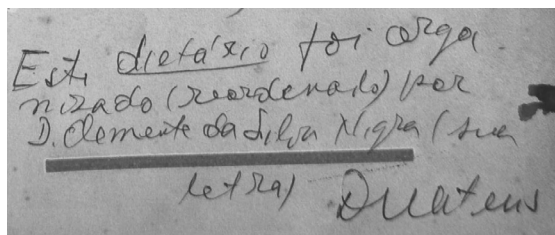 Este dietário foi orga
nizado (reordenado) por
D. Clemente da Silva Nigra (sua
letra)
D Mateus